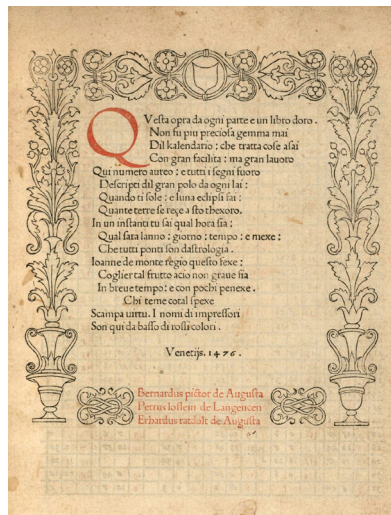 QVesta opra da ogni parte e un libro doro.
Non fu piu preciosa gemma mai
Dil kalendario: che tratta cose asai
Con gran facilita: ma gran lauoro
Qui numero aureo: e tutti i segni fuoro
Descripti dil gran polo da ogni lai:
Quando il sole: e luna eclipsi fai:
Quante terre se rexe a sto thexoro.
In un instanti tu sai qual hora sia:
Qual sara lanno: giorno: tempo: e mexe:
Che tutti ponti son dastrologia.
Ioanne de monte regio questo fexe:
Coglier tal frutto acio non graue sia
In breue tempo: e con pochi penexe.
Chi teme cotal spexe
Scampa uirtu. I nomi di impressori
Son qui da basso di rossi colori.
Venetijs. 1476.
Bernardus pictor de Augusta
Petrus loslein de Langencen
Erhardus ratdolt de Augusta